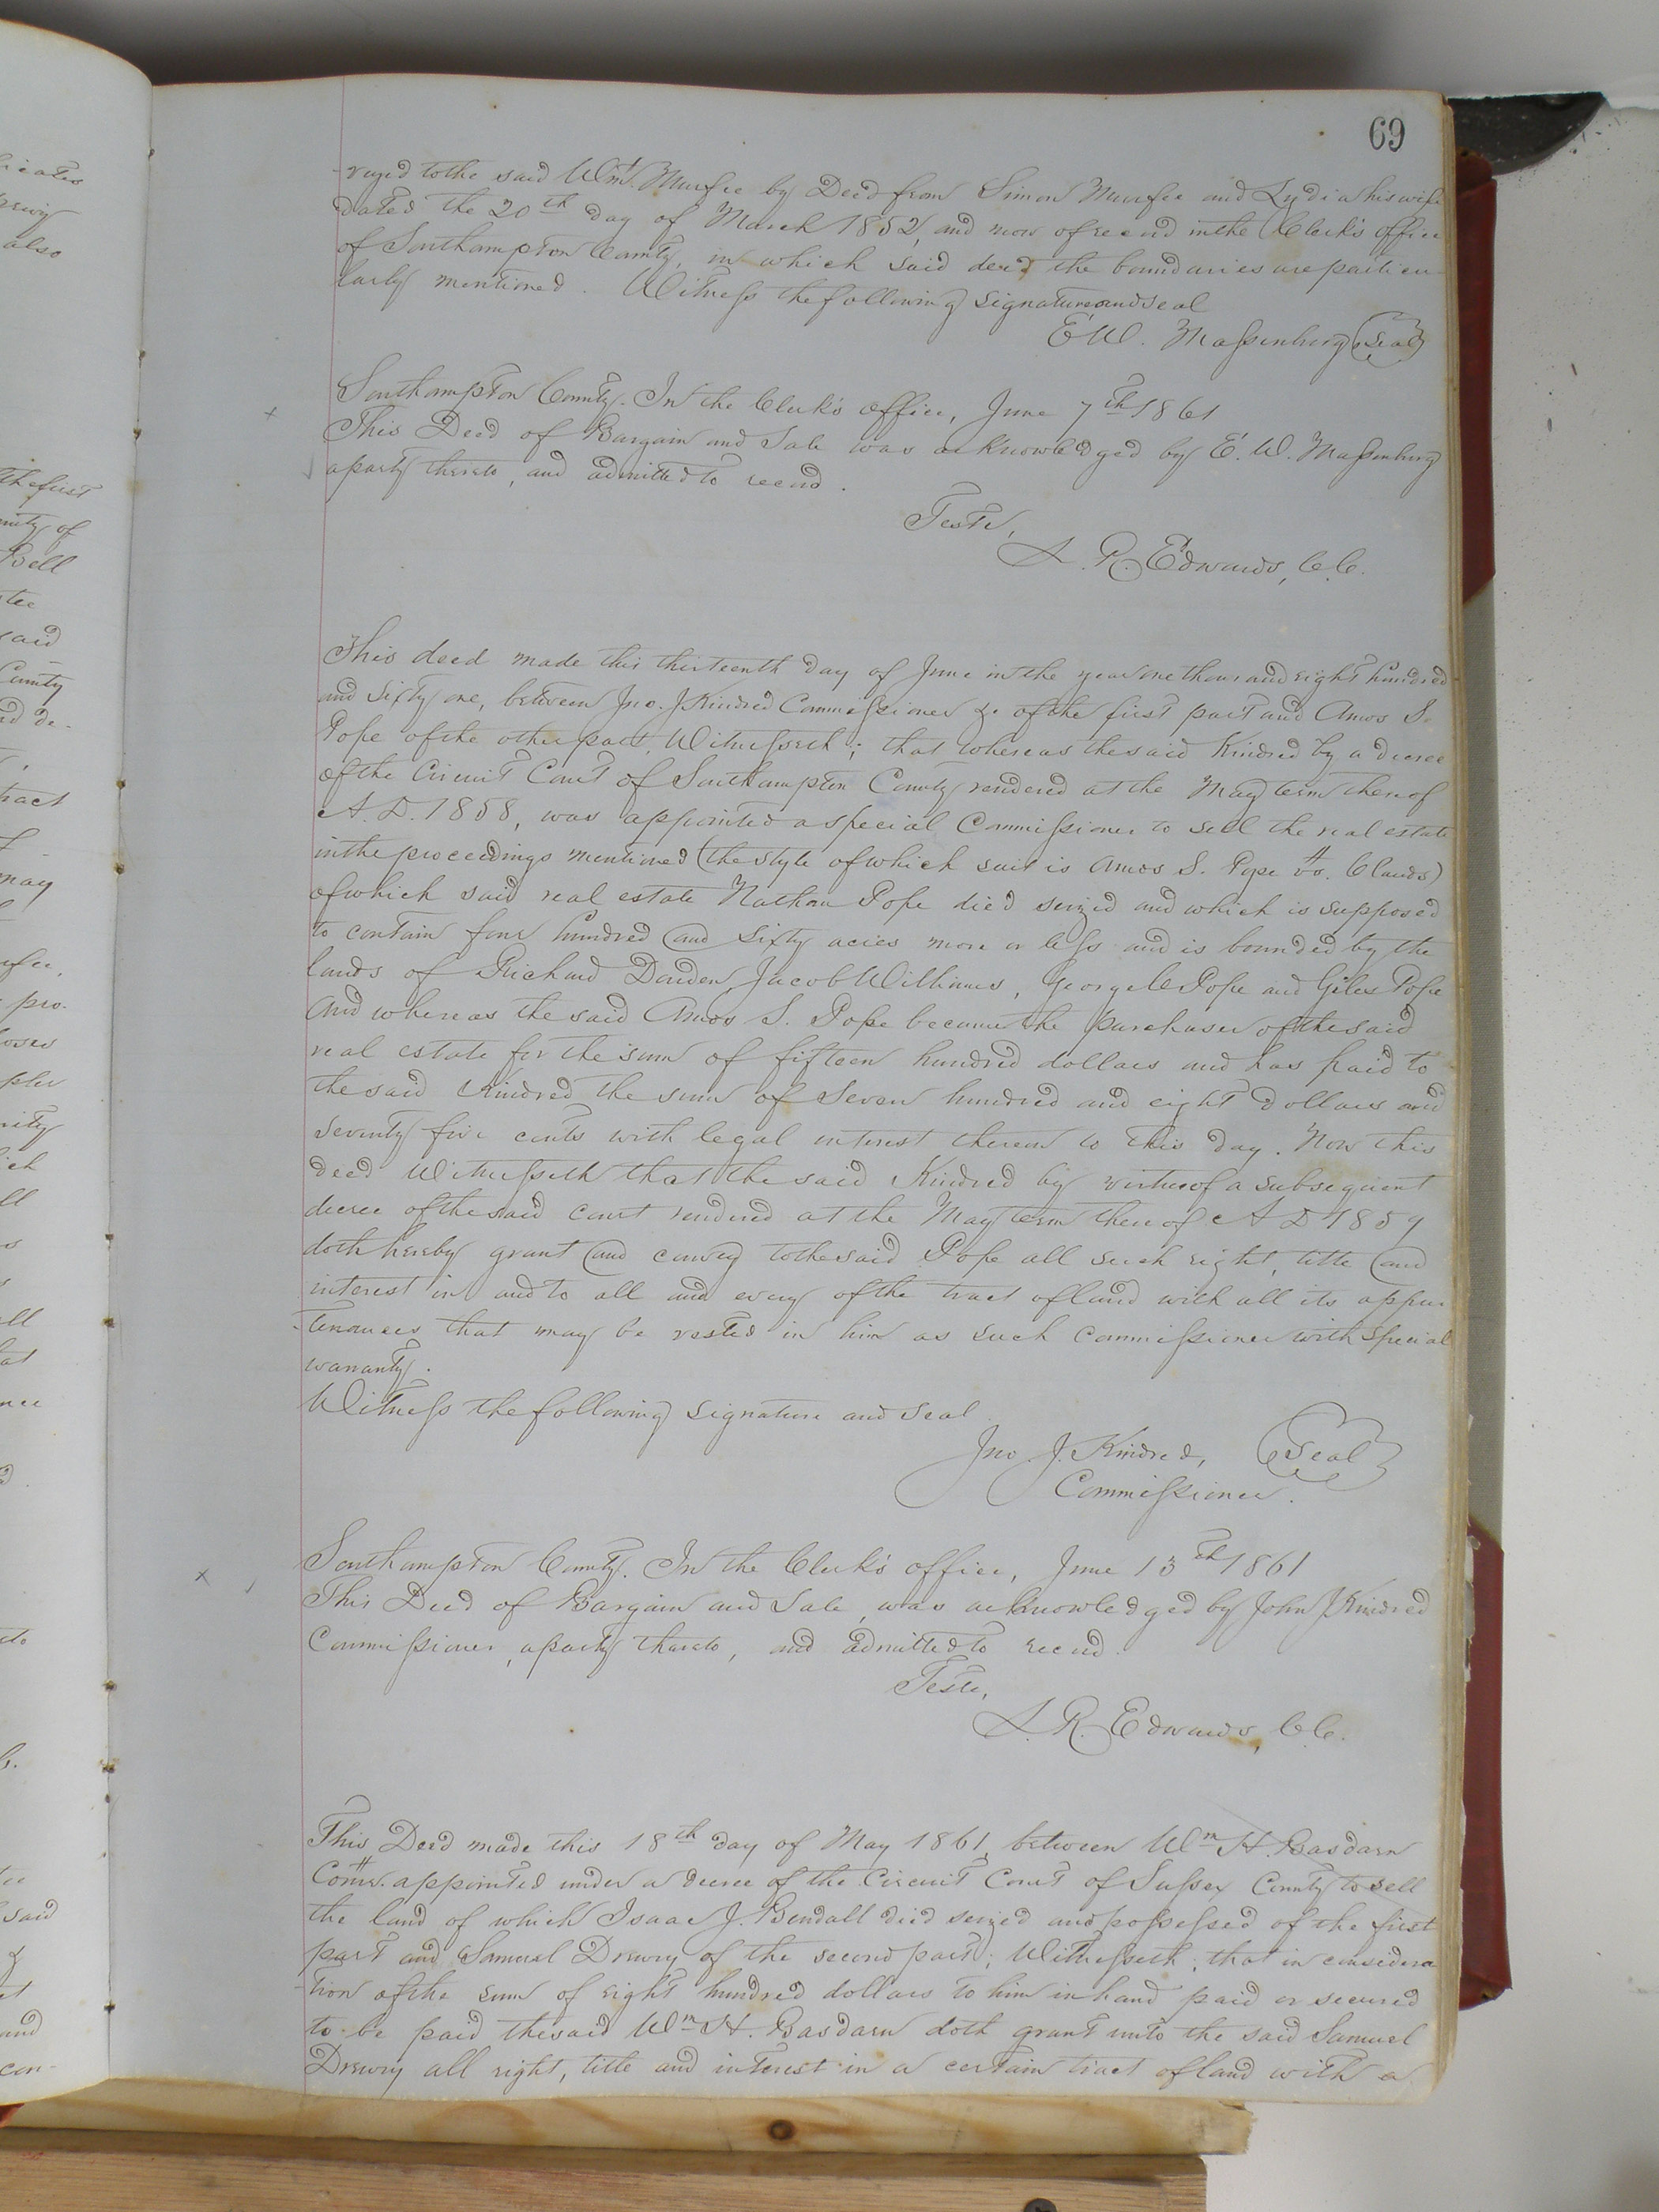 69
veyed to the said Wm. Murfee by Deed from Simon Murfee and Lydia his wife
dated the 20th day of March 1852, and now of record in the Clerk's office
of Southampton County, in which said deed the boundaries are particu
larly mentioned. Witness the following signature and seal
E. W. Massenburg (Seal)
Southampton County. In the Clerk's office, June 7th 1861
This Deed of Bargain and Sale was acknowledged by E. W. Massenburg
a party thereto, and admitted to record.
Teste,
L. R. Edwards, C.C.
This deed made this thirteenth day of June in the year one thousand eight hundred
and sixty one, between Jno. J. Kindred Commissioner &c of the first part and Amos S.
Pope of the other part, Witnesseth; that whereas the said Kindred by a decree
of the Circuit Court of Southampton County rendered at the May term thereof
A. D. 1858, was appointed a special Commissioner to sell the real estate
in the proceedings mentioned (the style of which suit is Amos S. Pope vs. Clauds)
of which said real estate Nathan Pope died seized and which is supposed
to contain four hundred and sixty acres more or less and is bounded by the
lands of Richard Darden, Jacob Williams, George C Pope and Giles Pope
And whereas the said Amos S. Pope became the purchaser of the said
real estate for the sum of fifteen hundred dollars and has paid to
the said Kindred the sum of Seven hundred and eight dollars and
seventy five cents with legal interest thereon to this day. Now this
deed Witnesseth that the said Kindred by virtue of a subsequent
decree of the said court rendered at the May term thereof A D 1859
doth hereby grant and convey to the said Pope all such right, title and
interest in and to all and every of the tract of land with all its appur
tenances that may be vested in him as such commissioner with special
warranty.
Witness the following signature and seal
Jno. J. Kindred, (Seal)
Commissioner.
Southampton County. In the Clerk's office, June 13th 1861
This Deed of Bargain and Sale, was acknowledged by John J. Kindred
Commissioner, a party thereto, and admitted to record.
Teste,
L. R. Edwards, C.C.
This Deed made this 18th day of May 1861, between Wm H. Basdarn
Comr. appointed under a decree of the Circuit Court of Sussex County to sell
the land of which Isaac J. Bendall died seized and possessed of the first
part and Samuel Drewry of the second part; Witnesseth; that in considera
tion of the sum of eight hundred dollars to him in hand paid or secured
to be paid the said Wm H. Basdarn doth grant unto the said Samuel
Drewry all right, title and interest in a certain tract of land with a